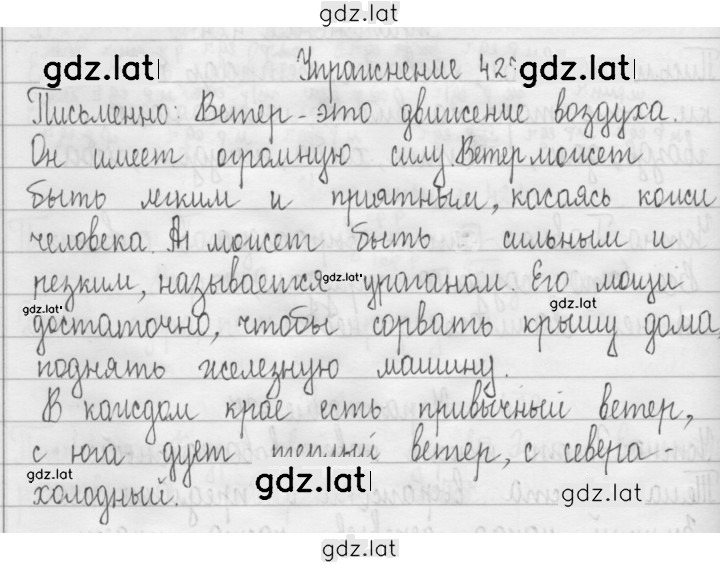 gdz.lat
gdz.lat Упражнение 42 gdz.lat
Письменно: Ветер - это движение воздуха.
Он имеет огромную силу. Ветер может
быть легким и приятным, касаясь кожи
человека. А может быть сильным и
резким, называется gdz.lat ураганом. Его мощи
gdz.lat gdz.lat
достаточно, чтобы сорвать крышу дома,
поднять железную машину.
В каждом крае есть привычный ветер,
с юга дует теплый ветер, с севера -
gdz.lat gdz.lat gdz.lat
холодный.
gdz.lat